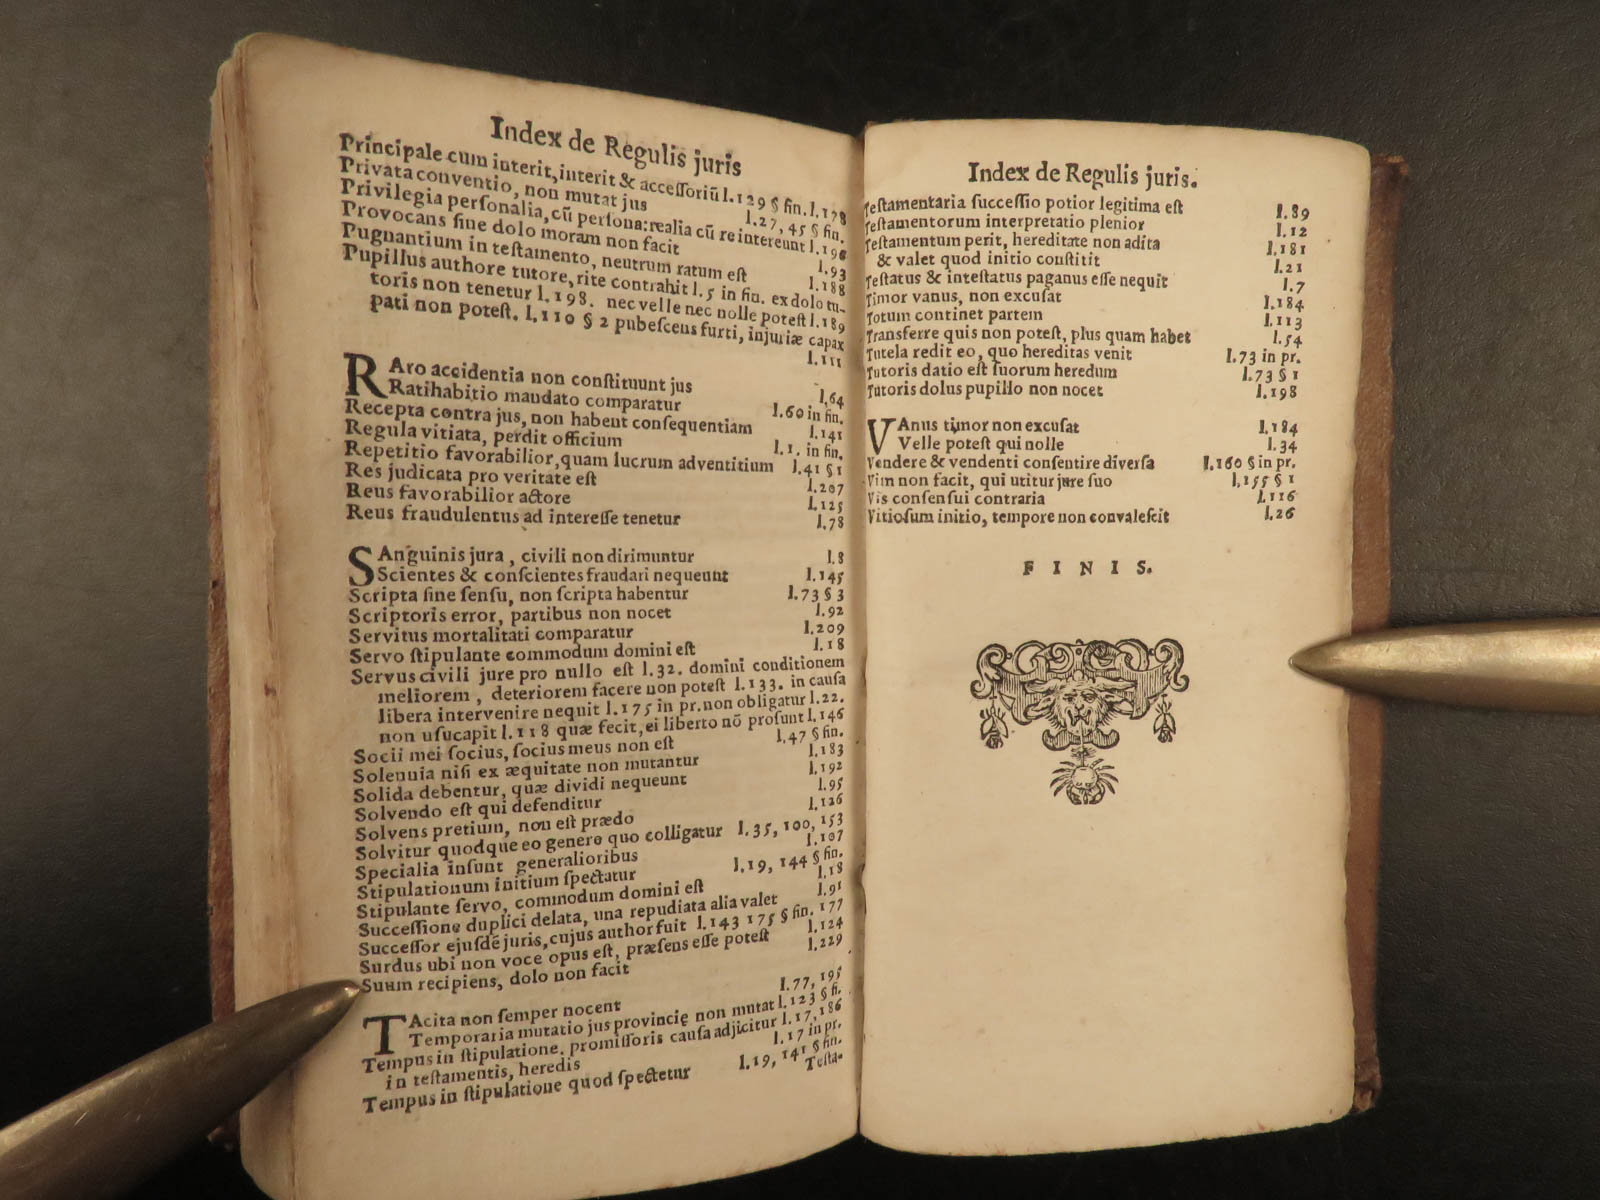 Index de Regulis juris
Principale cum interit, interit & acceſſoriũ l.129 § fin. l.178
Privata conventio, non mutat jus l.27, 45 § fin.
Privilegia perſonalia, cũ perſona: realia cũ re intereunt l.196
Provocans ſine dolo moram non facit l.93
Pugnantium in teſtamento, neutrum ratum eſt l.188
Pupillus authore tutore, rite contrahit l.5 in fin. ex dolo tu-
toris non tenetur l.198. nec velle nec nolle poteſt l.189
pati non poteſt. l.110 § 2 pubeſcens furti, injuriæ capax
l.111
RAro accidentia non conſtituunt jus l.64
Ratihabitio mandato comparatur l.60 in fin.
Recepta contra jus, non habent conſequentiam l.141
Regula vitiata, perdit officium l.1. in fin.
Repetitio favorabilior, quam lucrum adventitium l.41 § 1
Res judicata pro veritate eſt l.207
Reus favorabilior actore l.125
Reus fraudulentus ad intereſſe tenetur l.78
SAnguinis jura, civili non dirimuntur l.8
Scientes & conſcientes fraudari nequeunt l.145
Scripta ſine ſenſu, non ſcripta habentur l.73 § 3
Scriptoris error, partibus non nocet l.92
Servitus mortalitati comparatur l.209
Servo ſtipulante commodum domini eſt l.18
Servus civili jure pro nullo eſt l.32. domini conditionem
meliorem, deteriorem facere non poteſt l.133. in cauſa
libera intervenire nequit l.175 in pr. non obligatur l.22.
non uſucapit l.118 quæ fecit, ei liberto nõ proſunt l.146
Socii mei ſocius, ſocius meus non eſt l.47 § fin.
Solennia niſi ex æquitate non mutantur l.183
Solida debentur, quæ dividi nequeunt l.192
Solvendo eſt qui defenditur l.95
Solvens pretium, non eſt prædo l.126
Solvitur quodque eo genere quo colligatur l.35, 100, 153
Specialia inſunt generalioribus l.107
Stipulationum initium ſpectatur l.19, 144 § fin.
Stipulante ſervo, commodum domini eſt l.18
Succeſſione duplici delata, una repudiata alia valet l.91
Succeſſor ejuſdẽ juris, cujus author fuit l.143 175 § fin. 177
Surdus ubi non voce opus eſt, præſens eſſe poteſt l.124
Suum recipiens, dolo non facit l.229
TAcita non ſemper nocent l.77, 195
Temporaria mutatio jus provincię non mutat l.123 § fi.
Tempus in ſtipulatione. promiſſoris cauſa adjicitur l.17, 186
in teſtamentis, heredis l.17 in pr.
Tempus in ſtipulatione quod ſpectetur l.19, 141 § fin.
Teſta-
Index de Regulis juris.
Teſtamentaria ſucceſſio potior legitima eſt l.89
Teſtamentorum interpretatio plenior l.12
Teſtamentum perit, hereditate non adita l.181
& valet quod initio conſtitit l.21
Teſtatus & inteſtatus paganus eſſe nequit l.7
Timor vanus, non excuſat l.184
Totum continet partem l.113
Transferre quis non poteſt, plus quam habet l.54
Tutela redit eo, quo hereditas venit l.73 in pr.
Tutoris datio eſt ſuorum heredum l.73 § 1
Tutoris dolus pupillo non nocet l.198
VAnus timor non excuſat l.184
Velle poteſt qui nolle l.34
Vendere & vendenti conſentire diverſa l.160 § in pr.
Vim non facit, qui utitur jure ſuo l.155 § 1
Vis conſenſui contraria l.116
Vitioſum initio, tempore non convaleſcit l.26
FINIS.